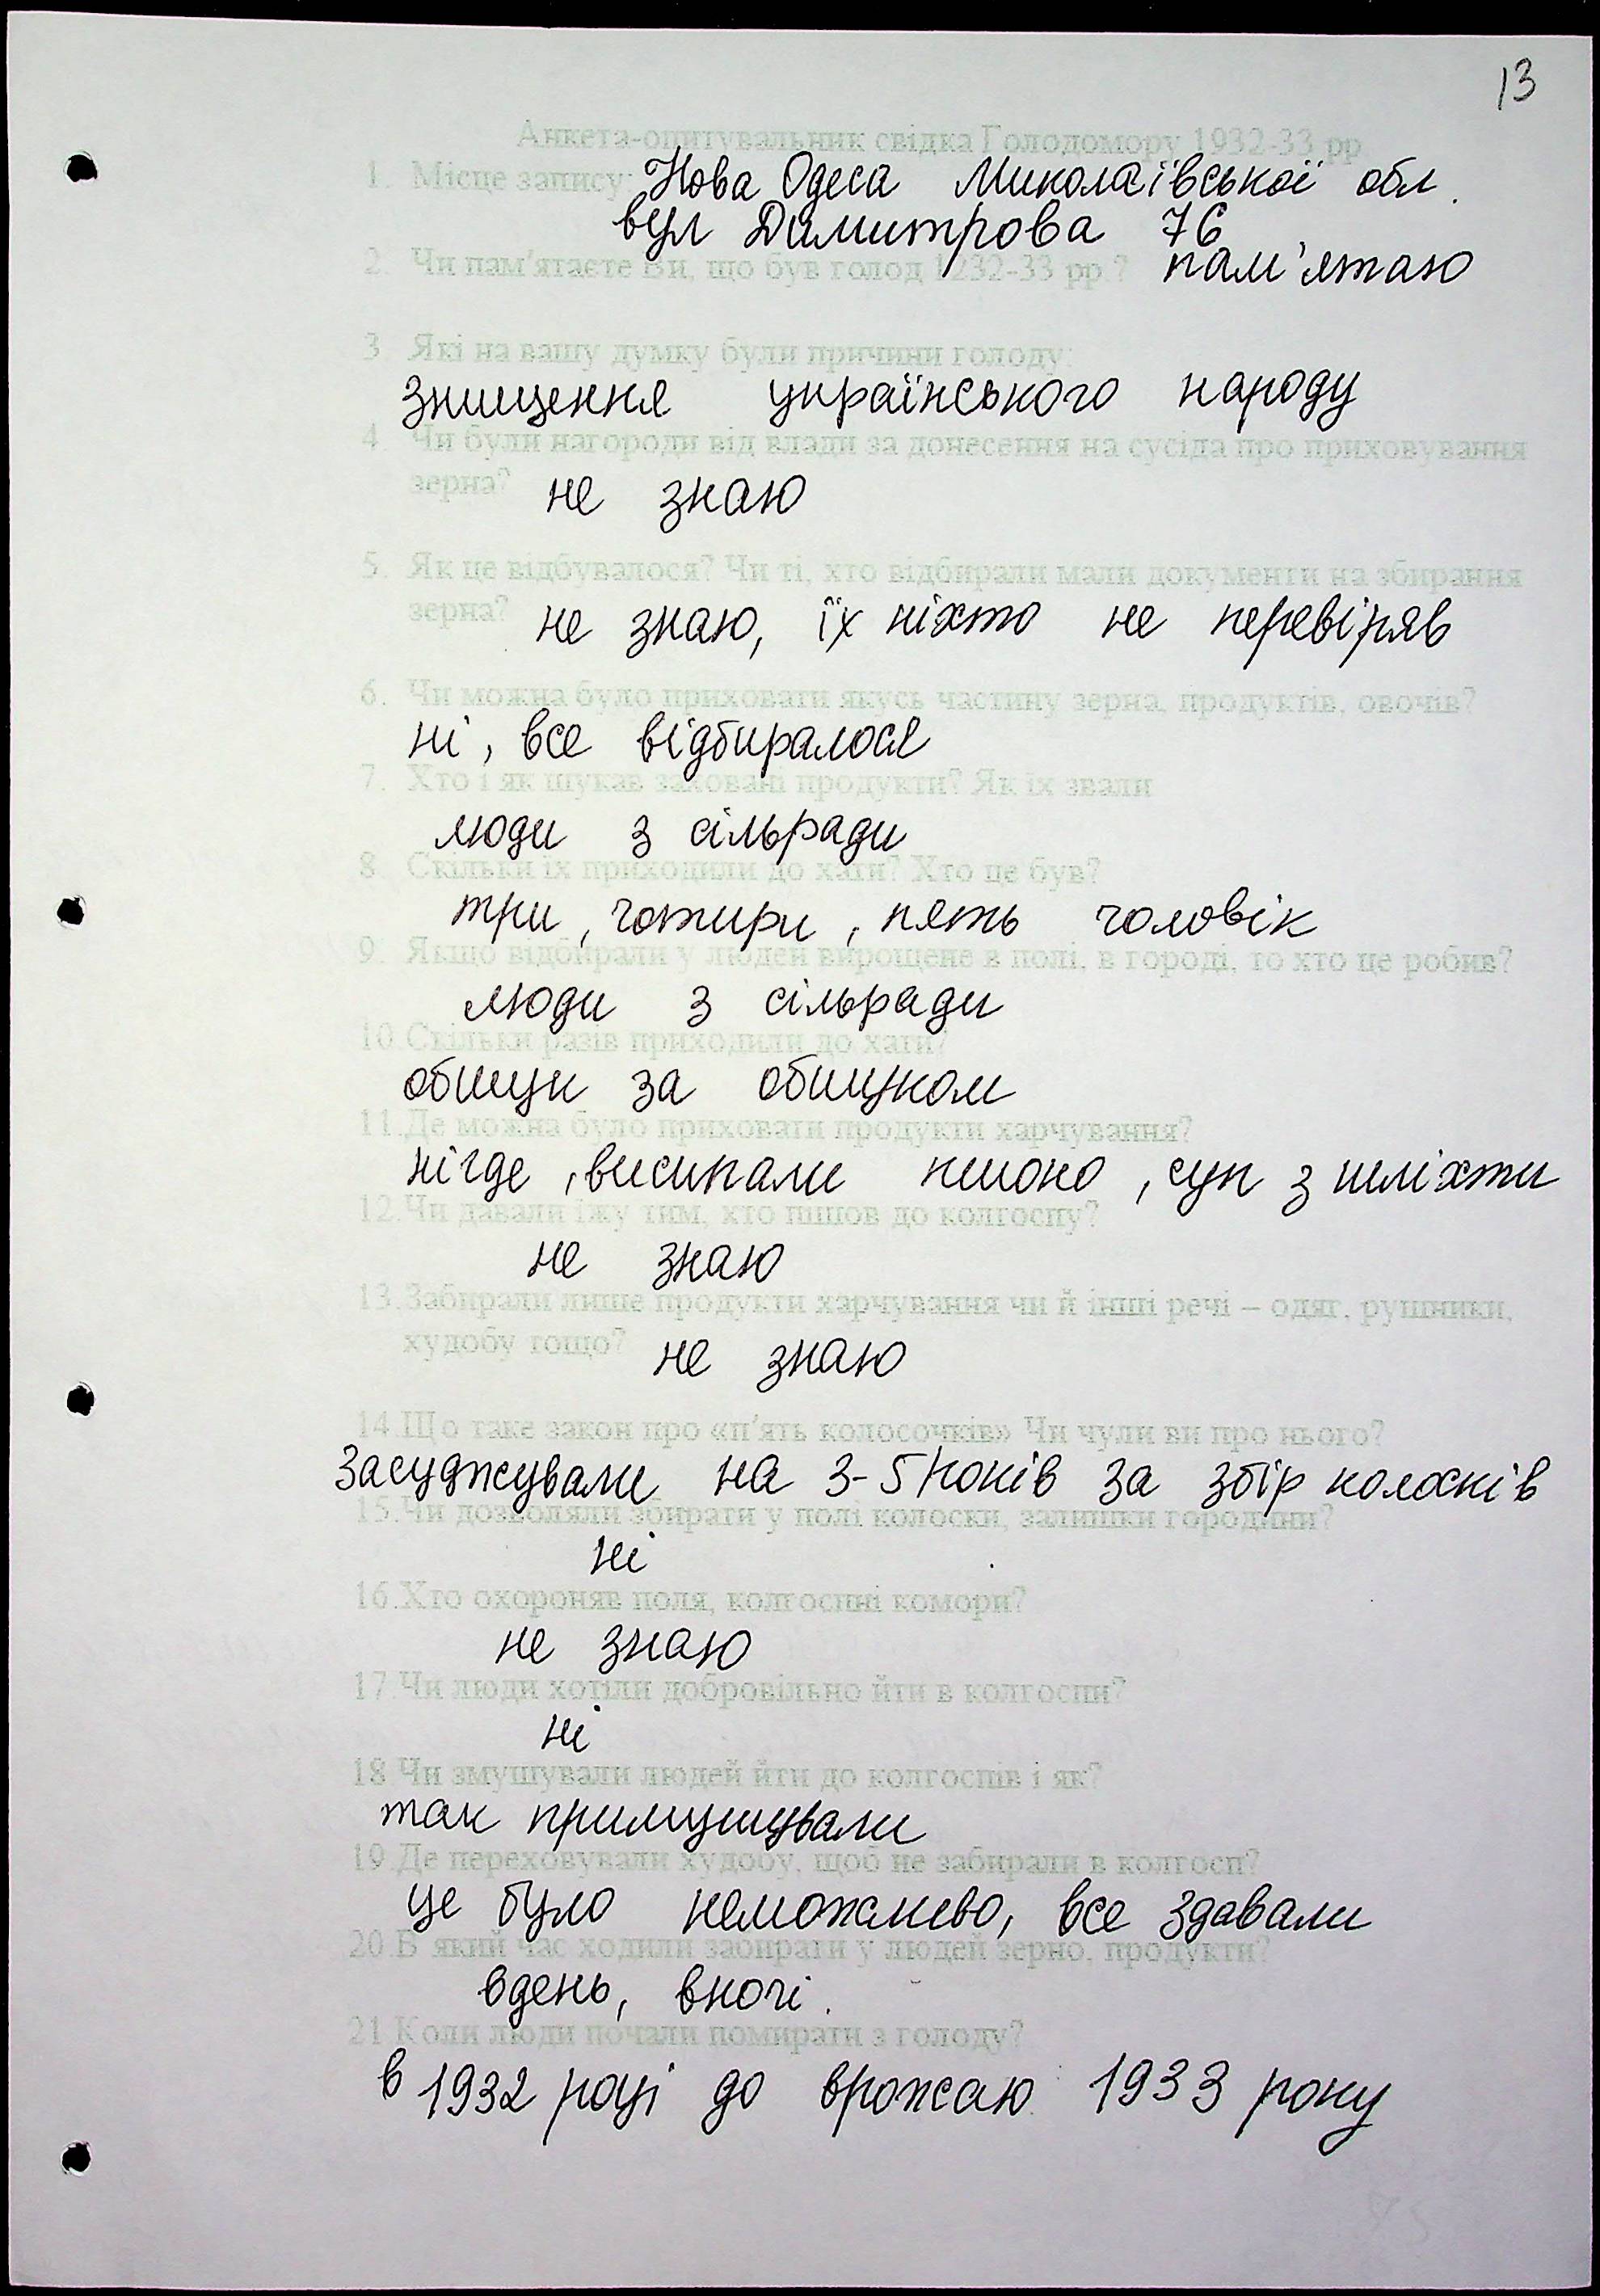 13
Анкета-опитувальник свідка Голодомору 1932-33 рр
1. Місце запису: Нова Одеса Миколаївської обл.
вул Димитрова 76
2. Чи пам'ятаєте Ви, що був голод 1232-33 рр.? пам'ятаю
3 Які на вашу думку були причини голоду:
знищення українського народу
4. Чи були нагороди від влади за донесення на сусіда про приховування
зерна? не знаю
5. Як це відбувалося? Чи ті, хто відбирали мали документи на збирання
зерна? не знаю, їх ніхто не перевіряв
6. Чи можна було приховати якусь частину зерна, продуктів, овочів?
ні, все відбиралося
7. Хто і як шукав заховані продукти? Як їх звали
люди з сільради
8. Скільки їх приходили до хати? Хто це був?
три, чотири, пять чоловік
9. Якщо відбирали у людей вирощене в полі, в городі, то хто це робив?
люди з сільради
10.Скільки разів приходили до хати?
обшук за обшуком
11.Де можна було приховати продукти харчування?
нігде, висипали пшоно, суп з шліхти
12.Чи давали їжу тим, хто пішов до колгоспу?
не знаю
13.Забирали лише продукти харчування чи й інші речі – одяг, рушники,
худобу тощо? не знаю
14.Що таке закон про «п'ять колосочків» Чи чули ви про нього?
Засуджували на 3-5 років за збір колосків
15.Чи дозволяли збирати у полі колоски, залишки городини?
ні
16.Хто охороняв поля, колгоспні комори?
не знаю
17.Чи люди хотіли добровільно йти в колгоспи?
ні
18.Чи змушували людей йти до колгоспів і як?
так примушували
19.Де переховували худобу, щоб не забирали в колгосп?
це було неможливо, все здавали
20.В який час ходили забирати у людей зерно, продукти?
вдень, вночі.
21.Коли люди почали помирати з голоду?
в 1932 році до врожаю 1933 року